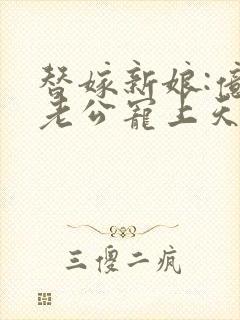 替嫁新娘:
老公寵上天
三傻二疯